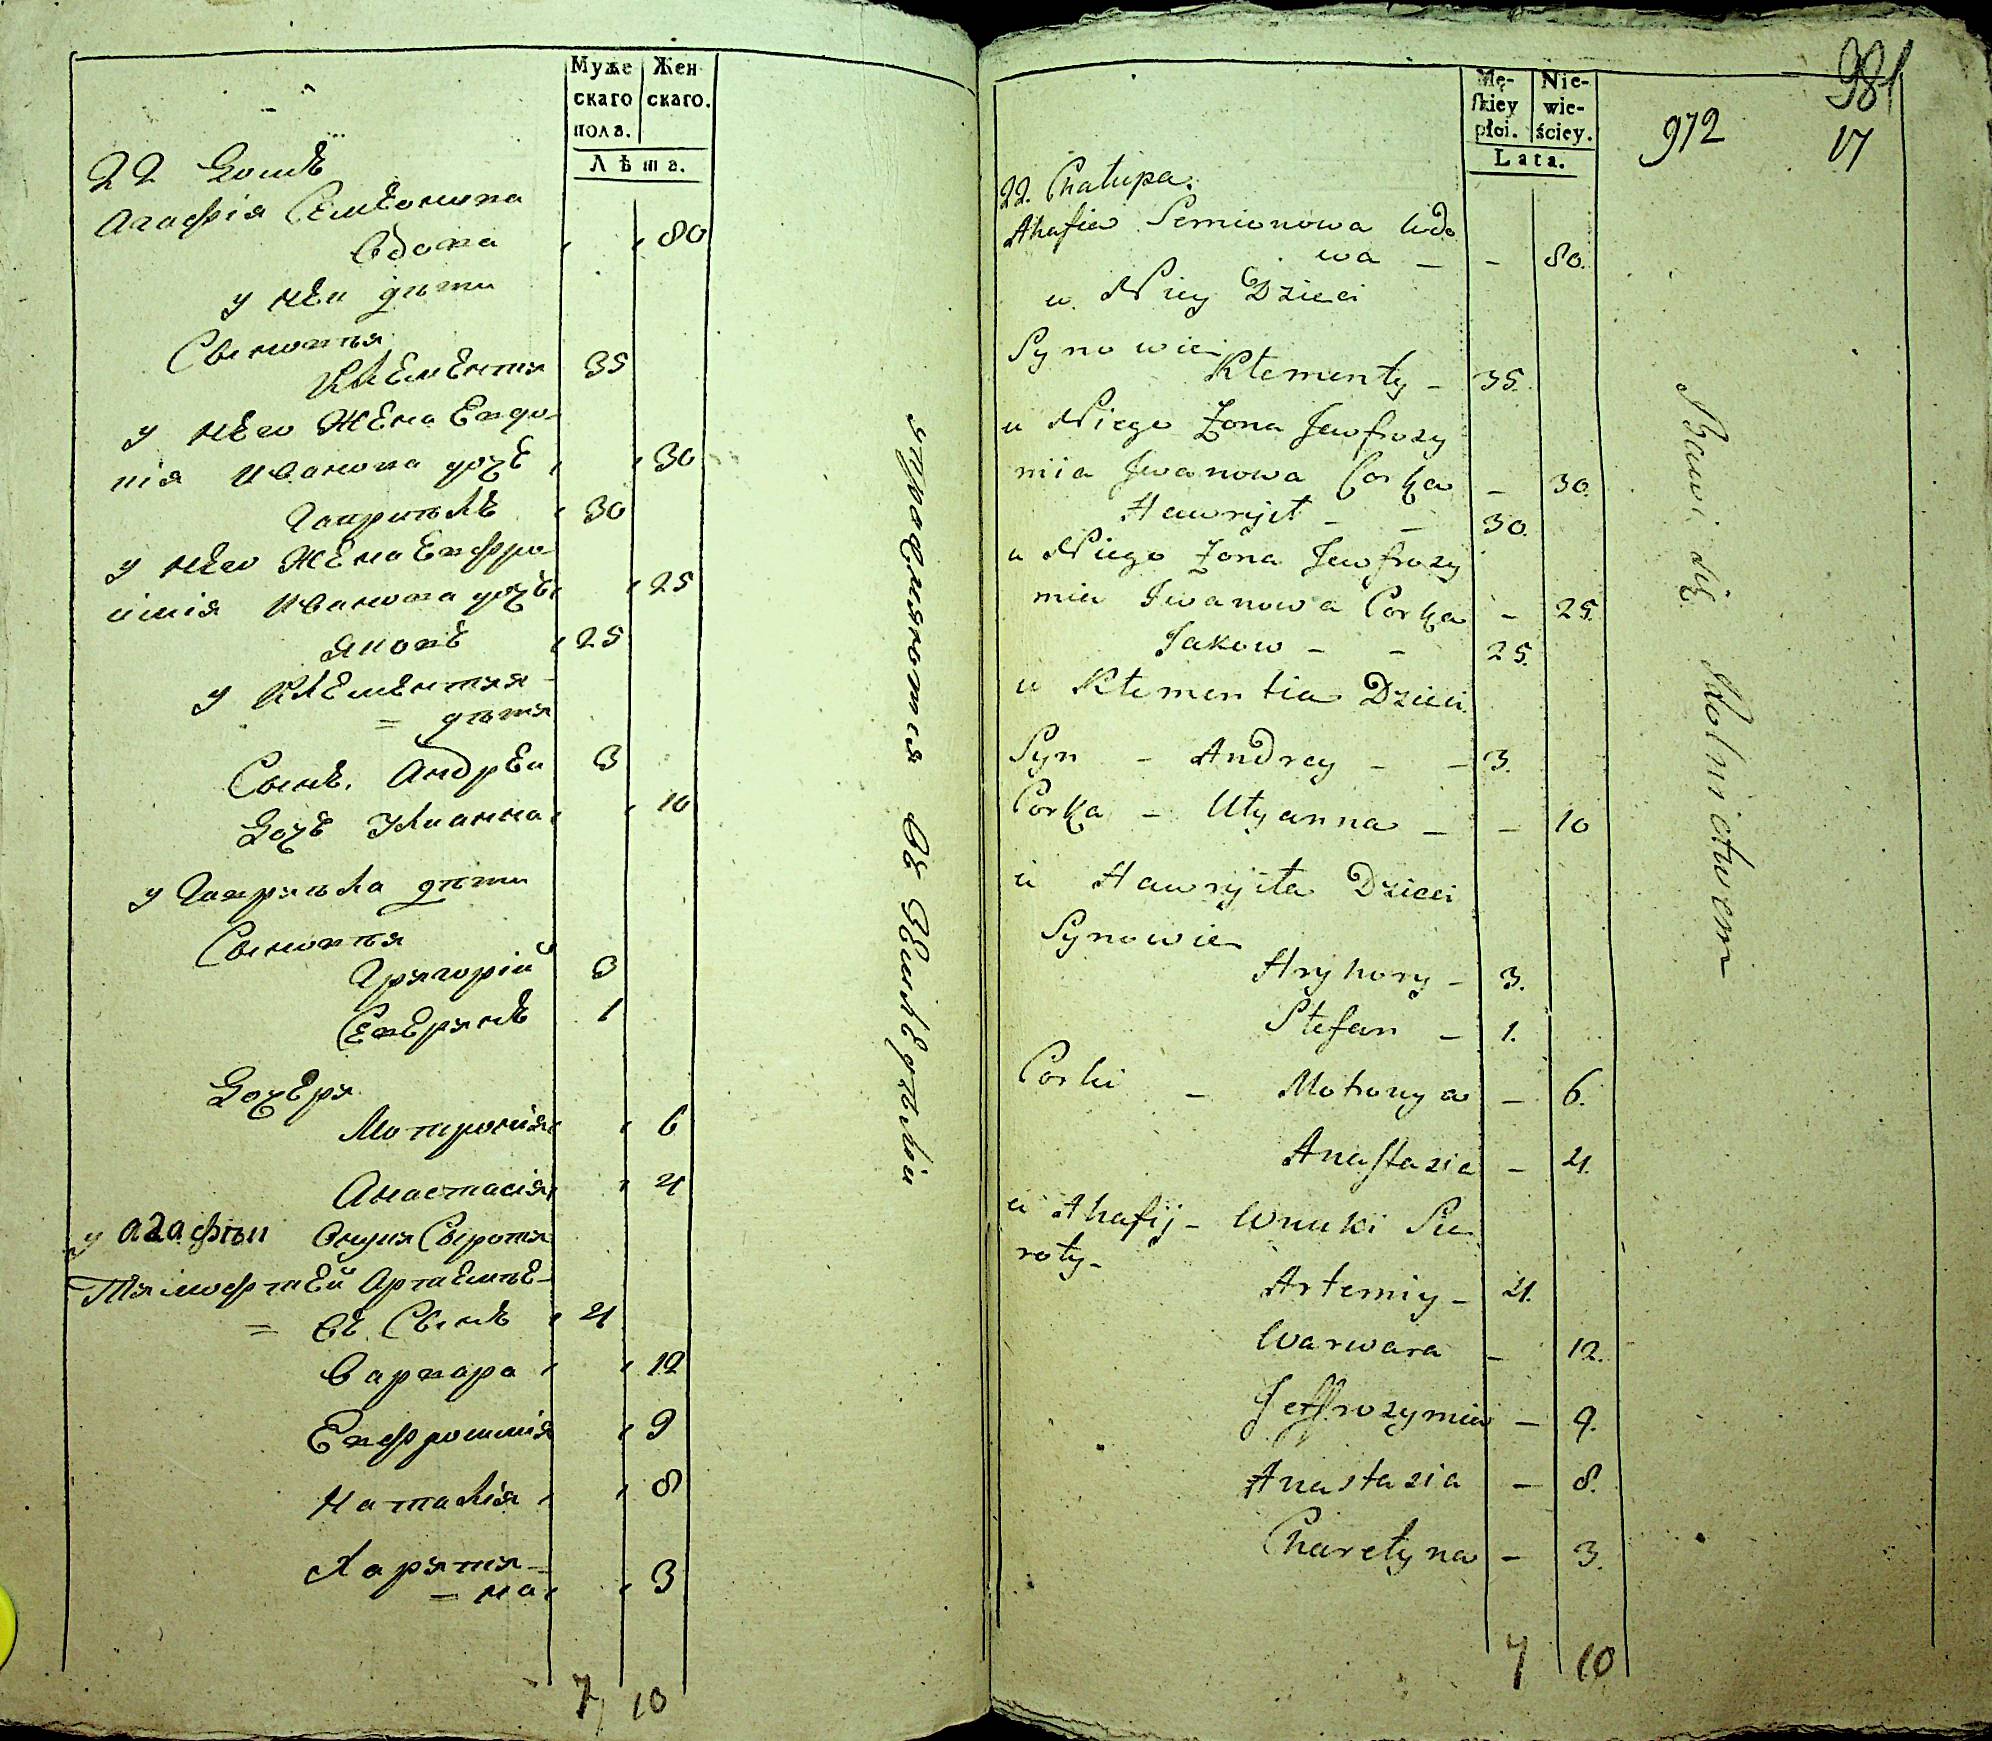 Муже
скаго
пола.
Жен
скаго.
Лѣта.
22 Домъ
Агафія Семеонова
вдова 80
у неи дѣти
Сыновья
Клементия 35
у него Жена Евдо-
кія Иванова дочь 30
Гаврилъ 30
у него Жена Евфро-
синія Иванова дочь 25
Яковъ 25
у Клементия
= дѣти
Сынъ. Андреи 3
Дочь Улианна 10
у Гаврила дѣти
Сыновья
Григорій 3
Северинъ 1
Дочери
Мотронія 6
Анастасія 4
у агафьи Внуки Сироти
Тимофтей Артемье-
= въ Сынъ 4
Варвара 12
Евфросинія 9
Наталія 8
Харити-
= на 3
7 10
упражняютія въ Земледѣліи
Mę-
skiey
płci.
Nie-
wie-
ściey.
Lata.
972
981
17
22. Chałupa.
Ahafia Semionowa wdo
wa – – 80.
u Niey Dzieci
Synowie
Klementy – 35.
u Niego Żona Jewfrozy
nia Iwanowa Corka – 30.
Hawryił – – 30.
u Niego Żona Jewfrozy
nia Iwanowa Corka – 25.
Jakow – – 25.
u Klementia Dzieci
Syn – Andrey – – 3.
Corka – Ulyanna – – 10
u Hawryiła Dzieci
Synowie
Hryhory – 3.
Stefan – 1.
Corki – Motrony a – 6.
Anastazia – 4.
u Ahafij – Wnuki Sie
roty –
Artemiy – 4.
Warwara – 12.
Jeffrozynia – 9.
Anastazia – 8.
Charetyna – 3.
7 10
Bawi się Rolnictwem